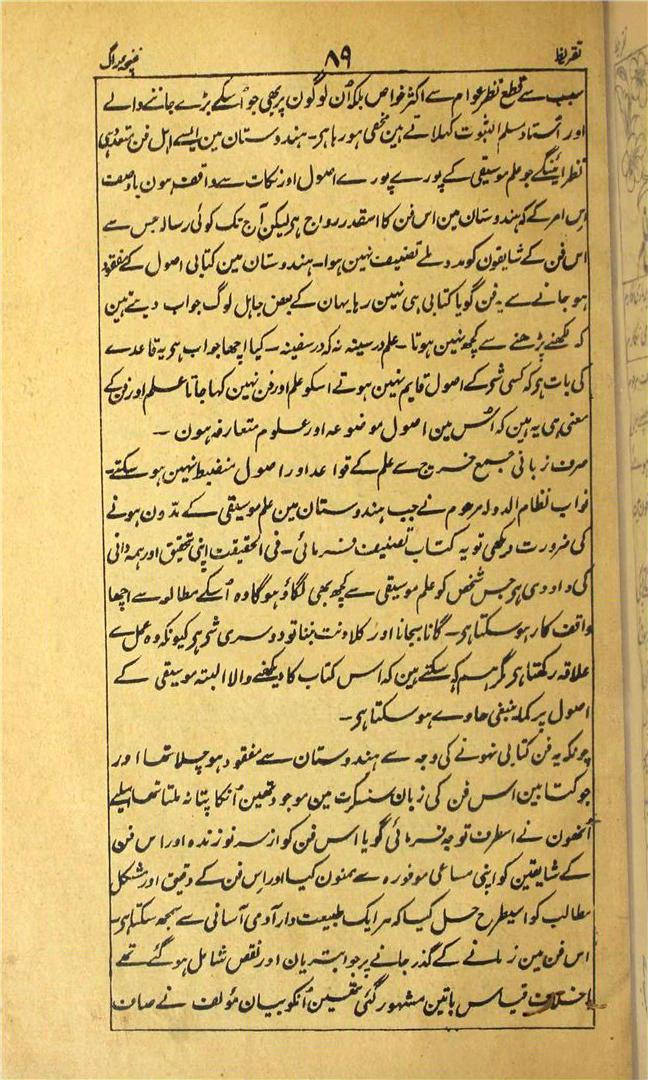 تقریظ ۸۹ غنچۂ راگ
سبب سے قطع نظر عوام سے اکثر خواص بلکہ اُن لوگون پر بھی جو اُسکے بڑے جاننے والے
اور استاد مسلم الثبوت کہلاتے ہین مخفی ہو رہا ہر۔ ہندوستان مین ایسے اہل فن متعدد ہی
نظر آئینگے جو علم موسیقی کے پورے پورے اصول اور نکات سے واقف ہون باوصف
اِس امر کے کہ ہندوستان مین اس فن کا اسقدر رواج ہر لیکن آج تک کوئی رسالہ جس سے
اس فن کے شایقون کو مدد ملے تصنیف نہین ہوا۔ ہندوستان مین کتابی اصول کے مفقود
ہو جانے سے یہ فن گویا کتابی ہی نہین رہا یہان کے بعض جاہل لوگ جواب دیتے ہین
کہ لکھنے پڑھنے سے کچھ نہین ہوتا۔ علم در سینہ نہ کہ در سفینہ۔ کیا اچھا جواب ہر یہ قاعدے
کی بات ہر کہ کسی شر کے اصول قایم نہین ہوتے اسکو علم اور فن نہین کہا جاتا علم اور فن کے
معنی ہی یہ ہین کہ اُس مین اصول موضوعہ اور علوم متعارفہ ہون ۔
صرف زبانی جمع خرچ سے علم کے قواعد اور اصول منضبط نہین ہو سکتے۔
نواب نظام الدولہ مرحوم نے جب ہندوستان مین علم موسیقی کے مدّون ہونے
کی ضرورت دیکھی تو یہ کتاب تصنیف فرمائی۔ فی الحقیقت اپنی تحقیق اور ہمہ دانی
کی داد دی ہر جس شخص کو علم موسیقی سے کچھ بھی لگاؤ ہوگا وہ اُسکے مطالعہ سے اچھا
واقف کار ہو سکتا ہر۔ گانا بجانا اور کلاونت بننا تو دوسری شر ہر کیونکہ وہ عمل سے
علاقہ رکھتا ہر مگر ہم کہہ سکتے ہین کہ اس کتاب کا دیکھنے والا البتہ موسیقی کے
اصول پر کما ینبغی حاوے ہو سکتا ہر۔
چونکہ یہ فن کتابی نہونے کی وجہ سے ہندوستان سے مفقود ہو چلا تھا اور
جو کتابین اس فن کی زبان سنسکرت مین موجود تھین اُنکا پتا نہ ملتا تھا اسلیے
اُنھون نے اسطرف توجہ فرمائی گویا اس فن کو از سر نو زندہ اور اس فن
کے شایقین کو اپنی مساعی موفورہ سے ممنون کیا اور اِس فن کے دقیق اور مشکل
مطالب کو اسیطرح حل کیا کہ ہر ایک طبیعت دار آدمی آسانی سے سمجھ سکتا ہر۔
اس فن مین زمانے کے گذر جانے پر جو ابتریان اور نقص شامل ہو گئے تھے
یا خلاف قیاس باتین مشہور گئی تھین اُنکو بیان مؤلف نے صاف